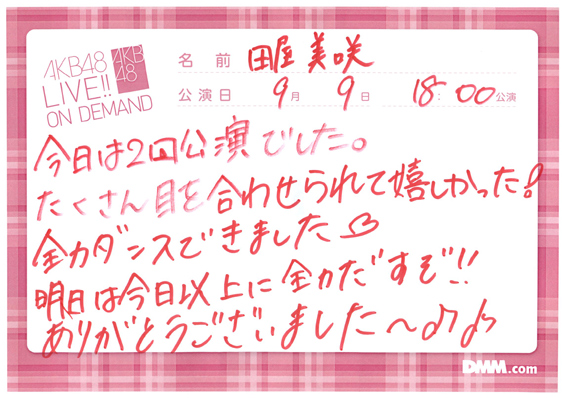 AKB48
LIVE!!
ON DEMAND
AKB
48
名前 田屋美咲
公演日 9月 9日 18:00公演
今日は2回公演でした。
たくさん目を合わせられて嬉しかった!
全力ダンスできました
明日は今日以上に全力だすぞ!!
ありがとうございました〜♪♪
DMM.com